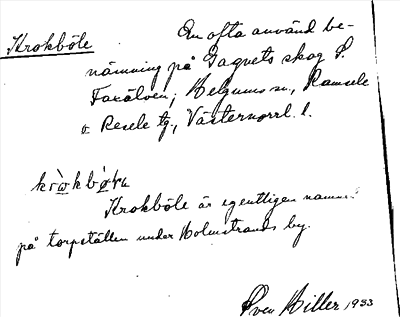 Krokböle
En ofta använd be-
nämning på Gagnets skog S.
Faxälven, Helgums sn, Ramsele
o. Resele tg., Västernorrl. l.
Krokböle är egentligen namnet
på torpställen under Holmstrands by.
Sven Hiller 1933